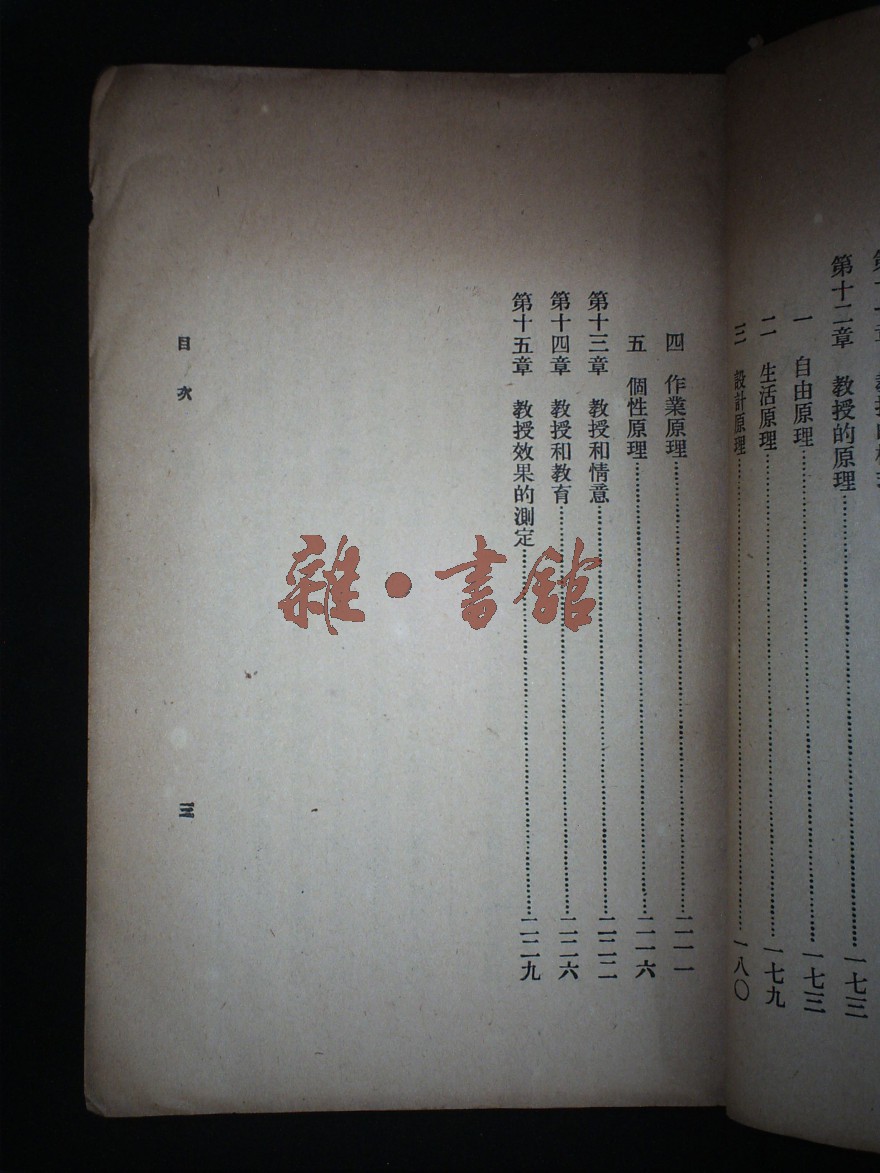 第十二章 教授的原理……一七三
一 自由原理……一七三
二 生活原理……一七九
三 設計原理……一八〇
四 作業原理……二一一
五 個性原理……二一六
第十三章 教授和情意……二二二
第十四章 教授和教育……二二六
第十五章 教授效果的測定……二二九
目次
三
雜·書館